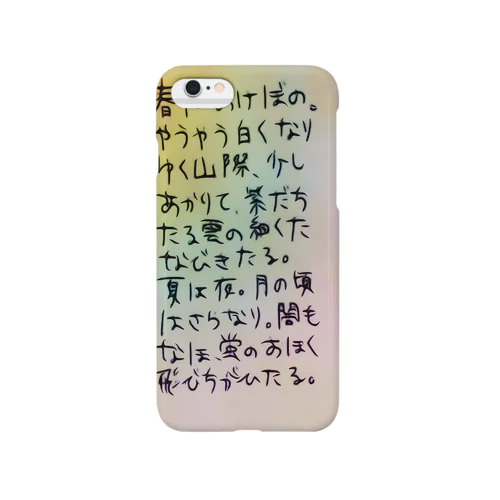 春 けぼの。
やうやう白くなり
ゆく山際、少し
あかりて、紫だち
たる雲の細くた
なびきたる。
夏は夜。月の頃
はさらなり。闇も
なほ、蛍のおほく
飛びちがひたる。